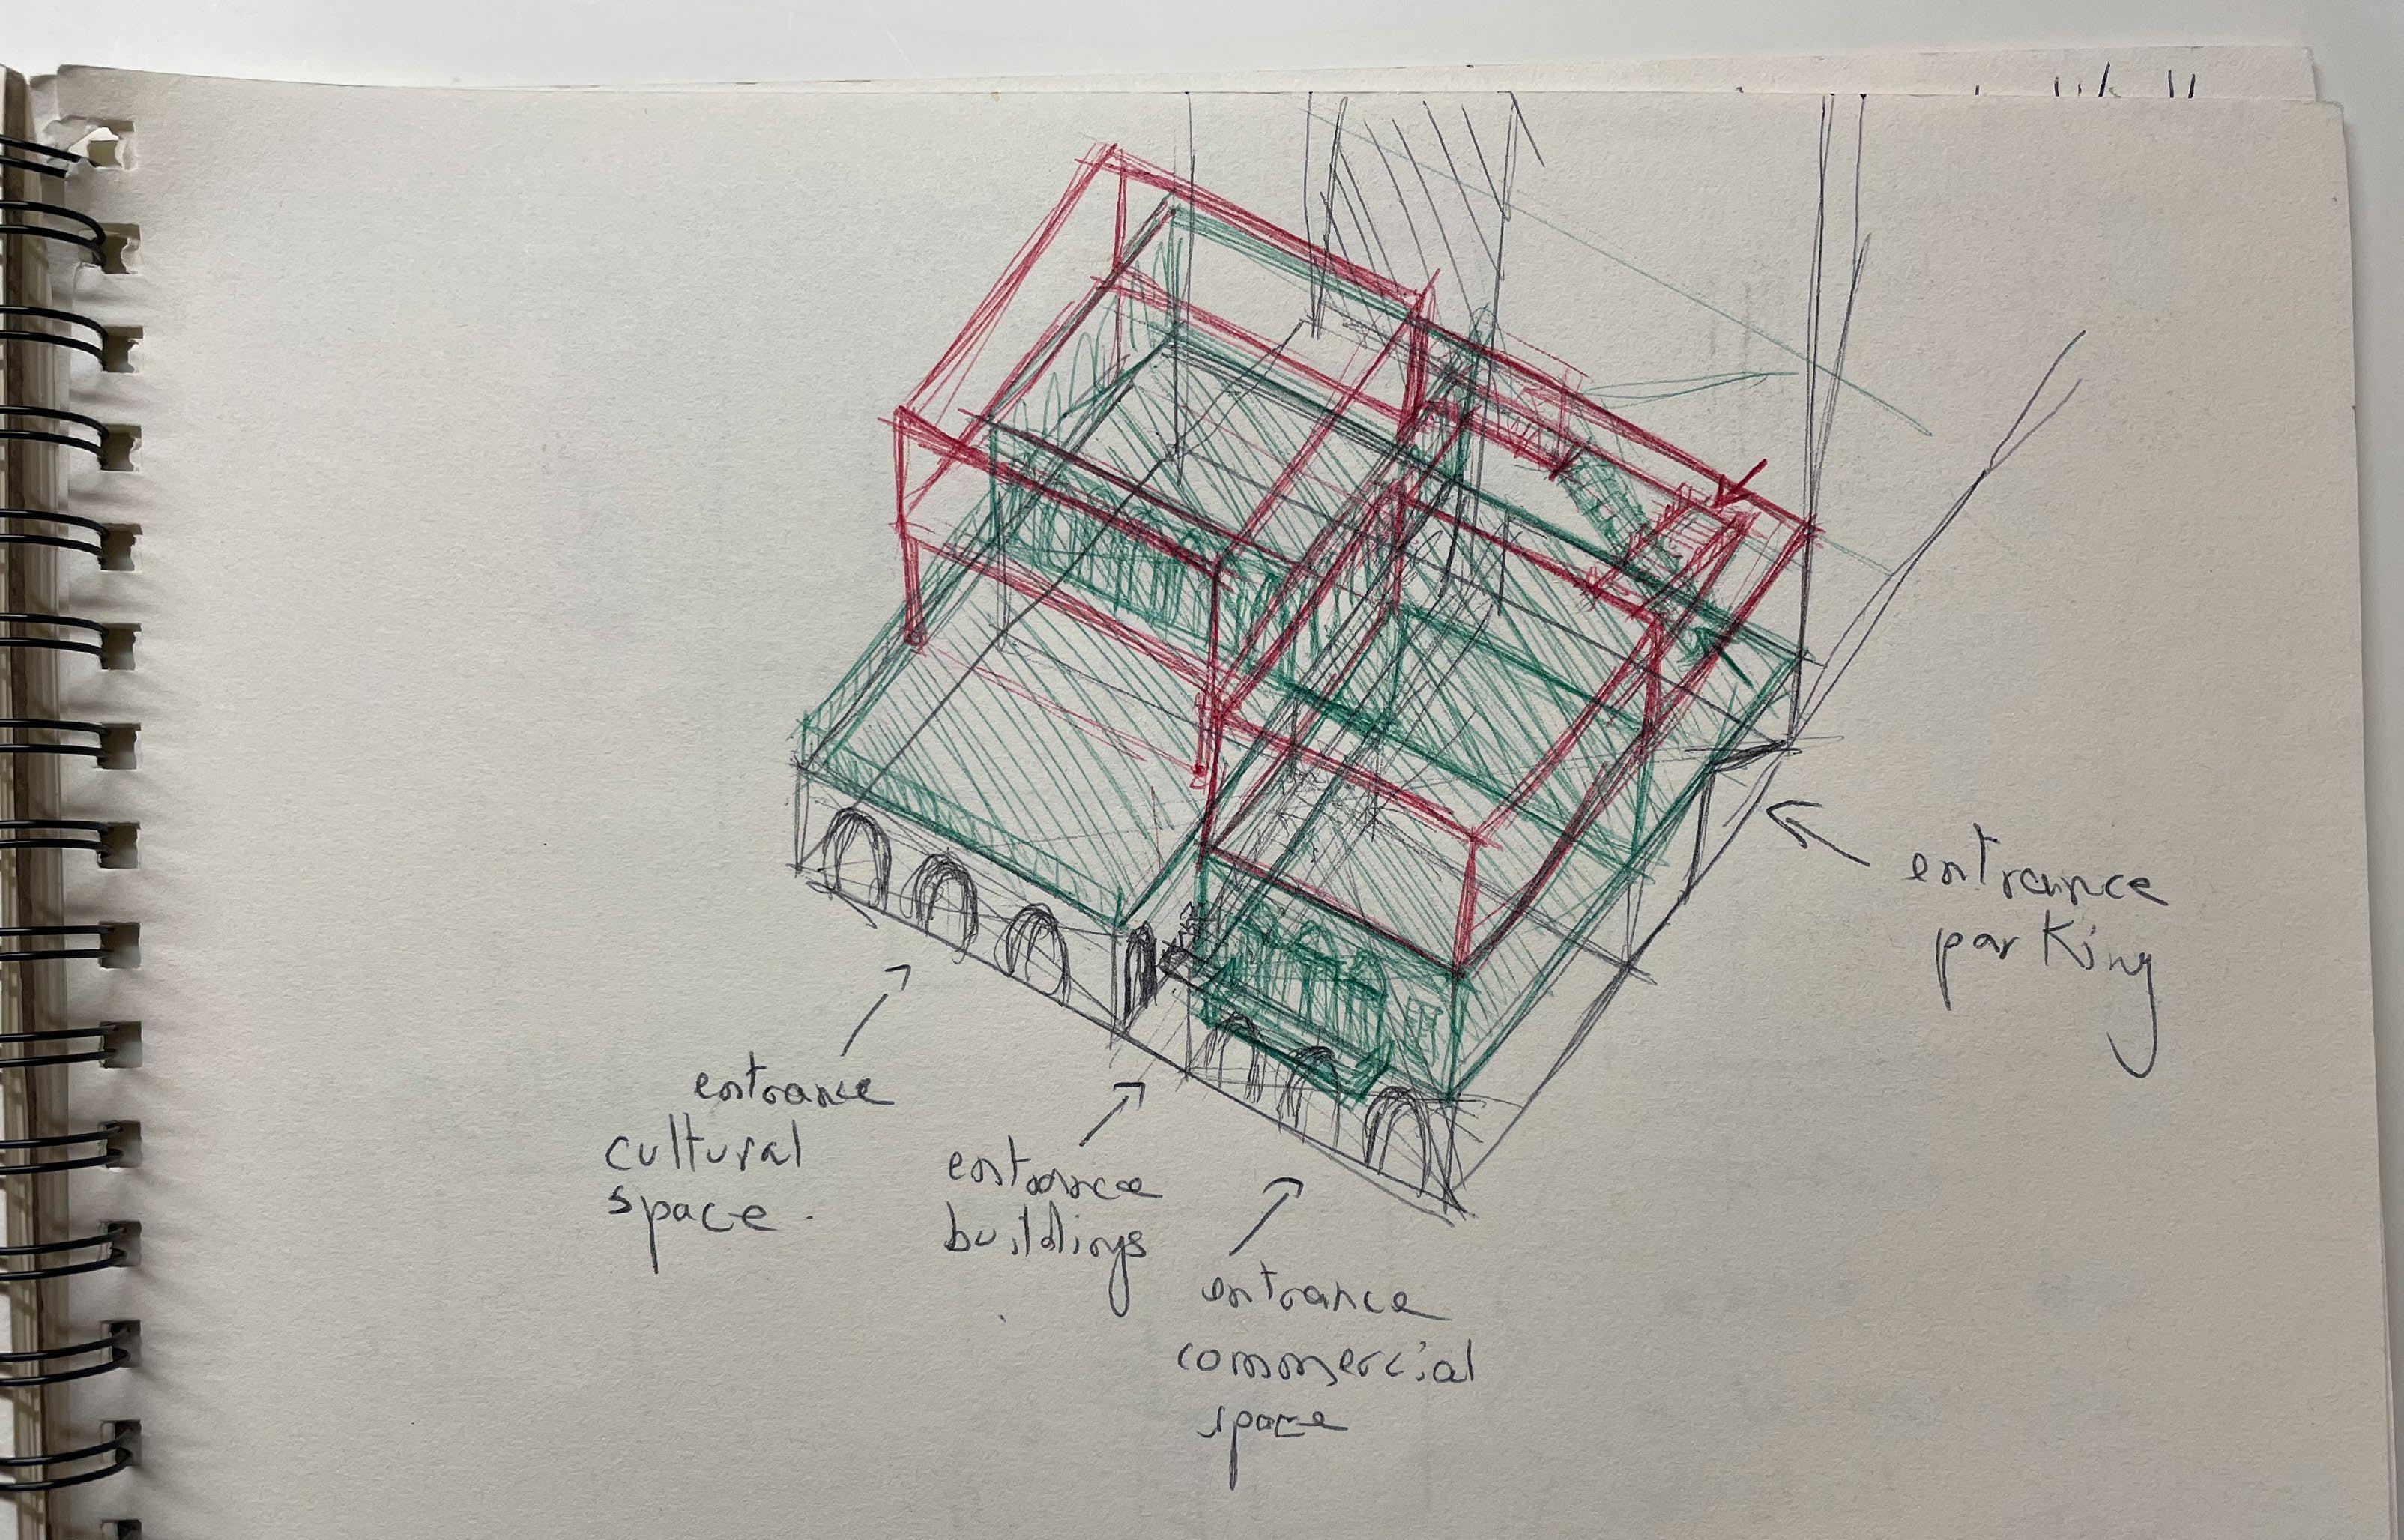 entrance
parking
entrance
cultural
space.
entrance
buildings
entrance
commercial
space